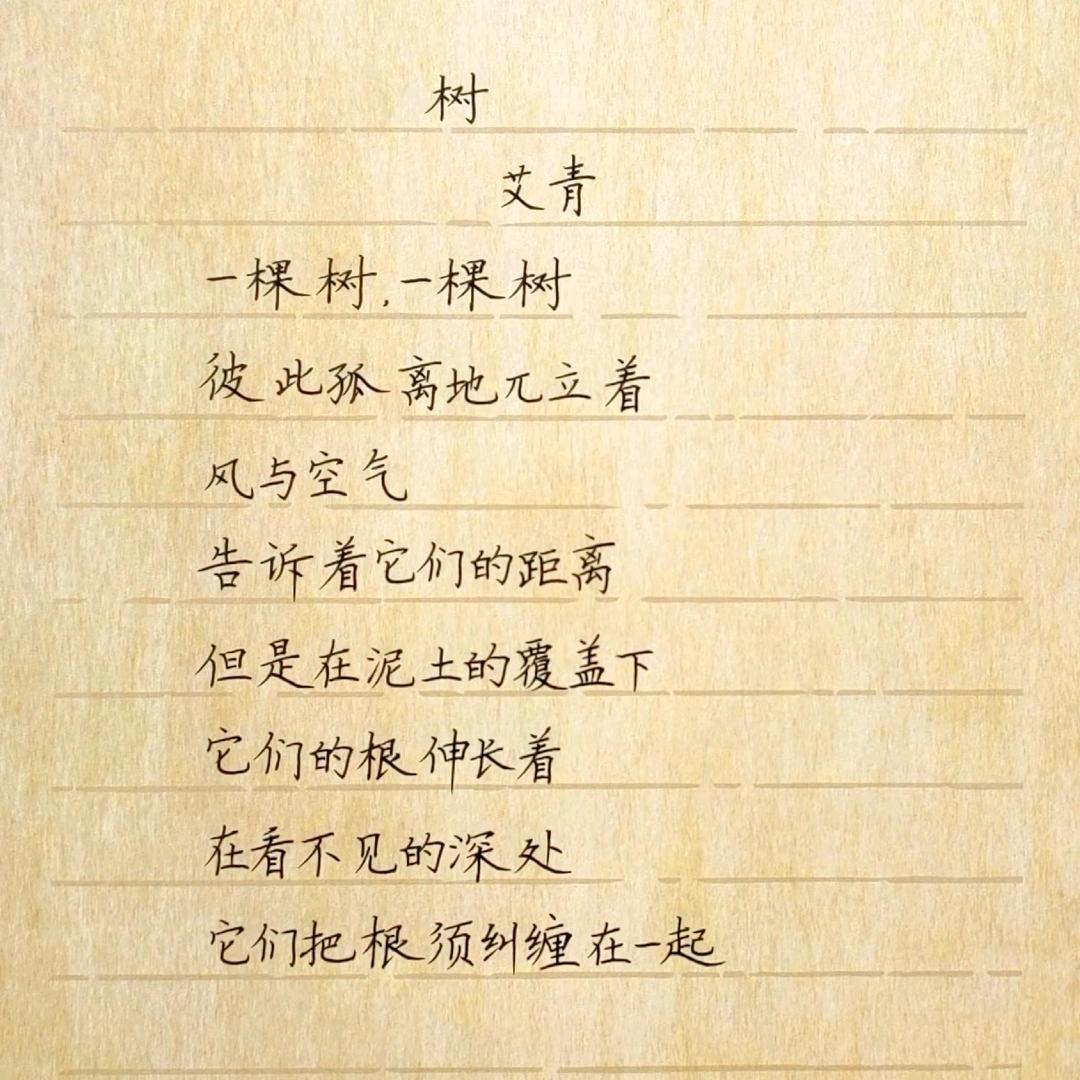 树
艾青
一棵树,一棵树
彼此孤离地兀立着
风与空气
告诉着它们的距离
但是在泥土的覆盖下
它们的根伸长着
在看不见的深处
它们把根须纠缠在一起